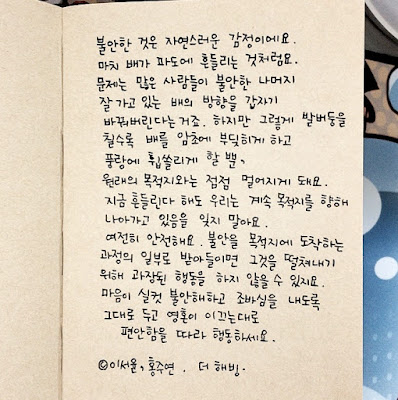 불안한 것은 자연스러운 감정이에요.
마치 배가 파도에 흔들리는 것처럼요.
문제는 많은 사람들이 불안한 나머지
잘 가고 있는 배의 방향을 갑자기
바꿔버린다는거죠. 하지만 그렇게 발버둥을
칠수록 배를 암초에 부딪히게 하고
풍랑에 휩쓸리게 할 뿐,
원래의 목적지와는 점점 멀어지게 돼요.
지금 흔들린다 해도 우리는 계속 목적지를 향해
나아가고 있음을 잊지 말아요.
여전히 안전해요. 불안을 목적지에 도착하는
과정의 일부로 받아들이면 그것을 떨쳐내기
위해 과장된 행동을 하지 않을 수 있지요.
마음이 실컷 불안해하고 조바심을 내도록
그대로 두고 영혼이 이끄는대로
편안함을 따라 행동하세요.
©이서윤, 홍주연. 더 해빙.